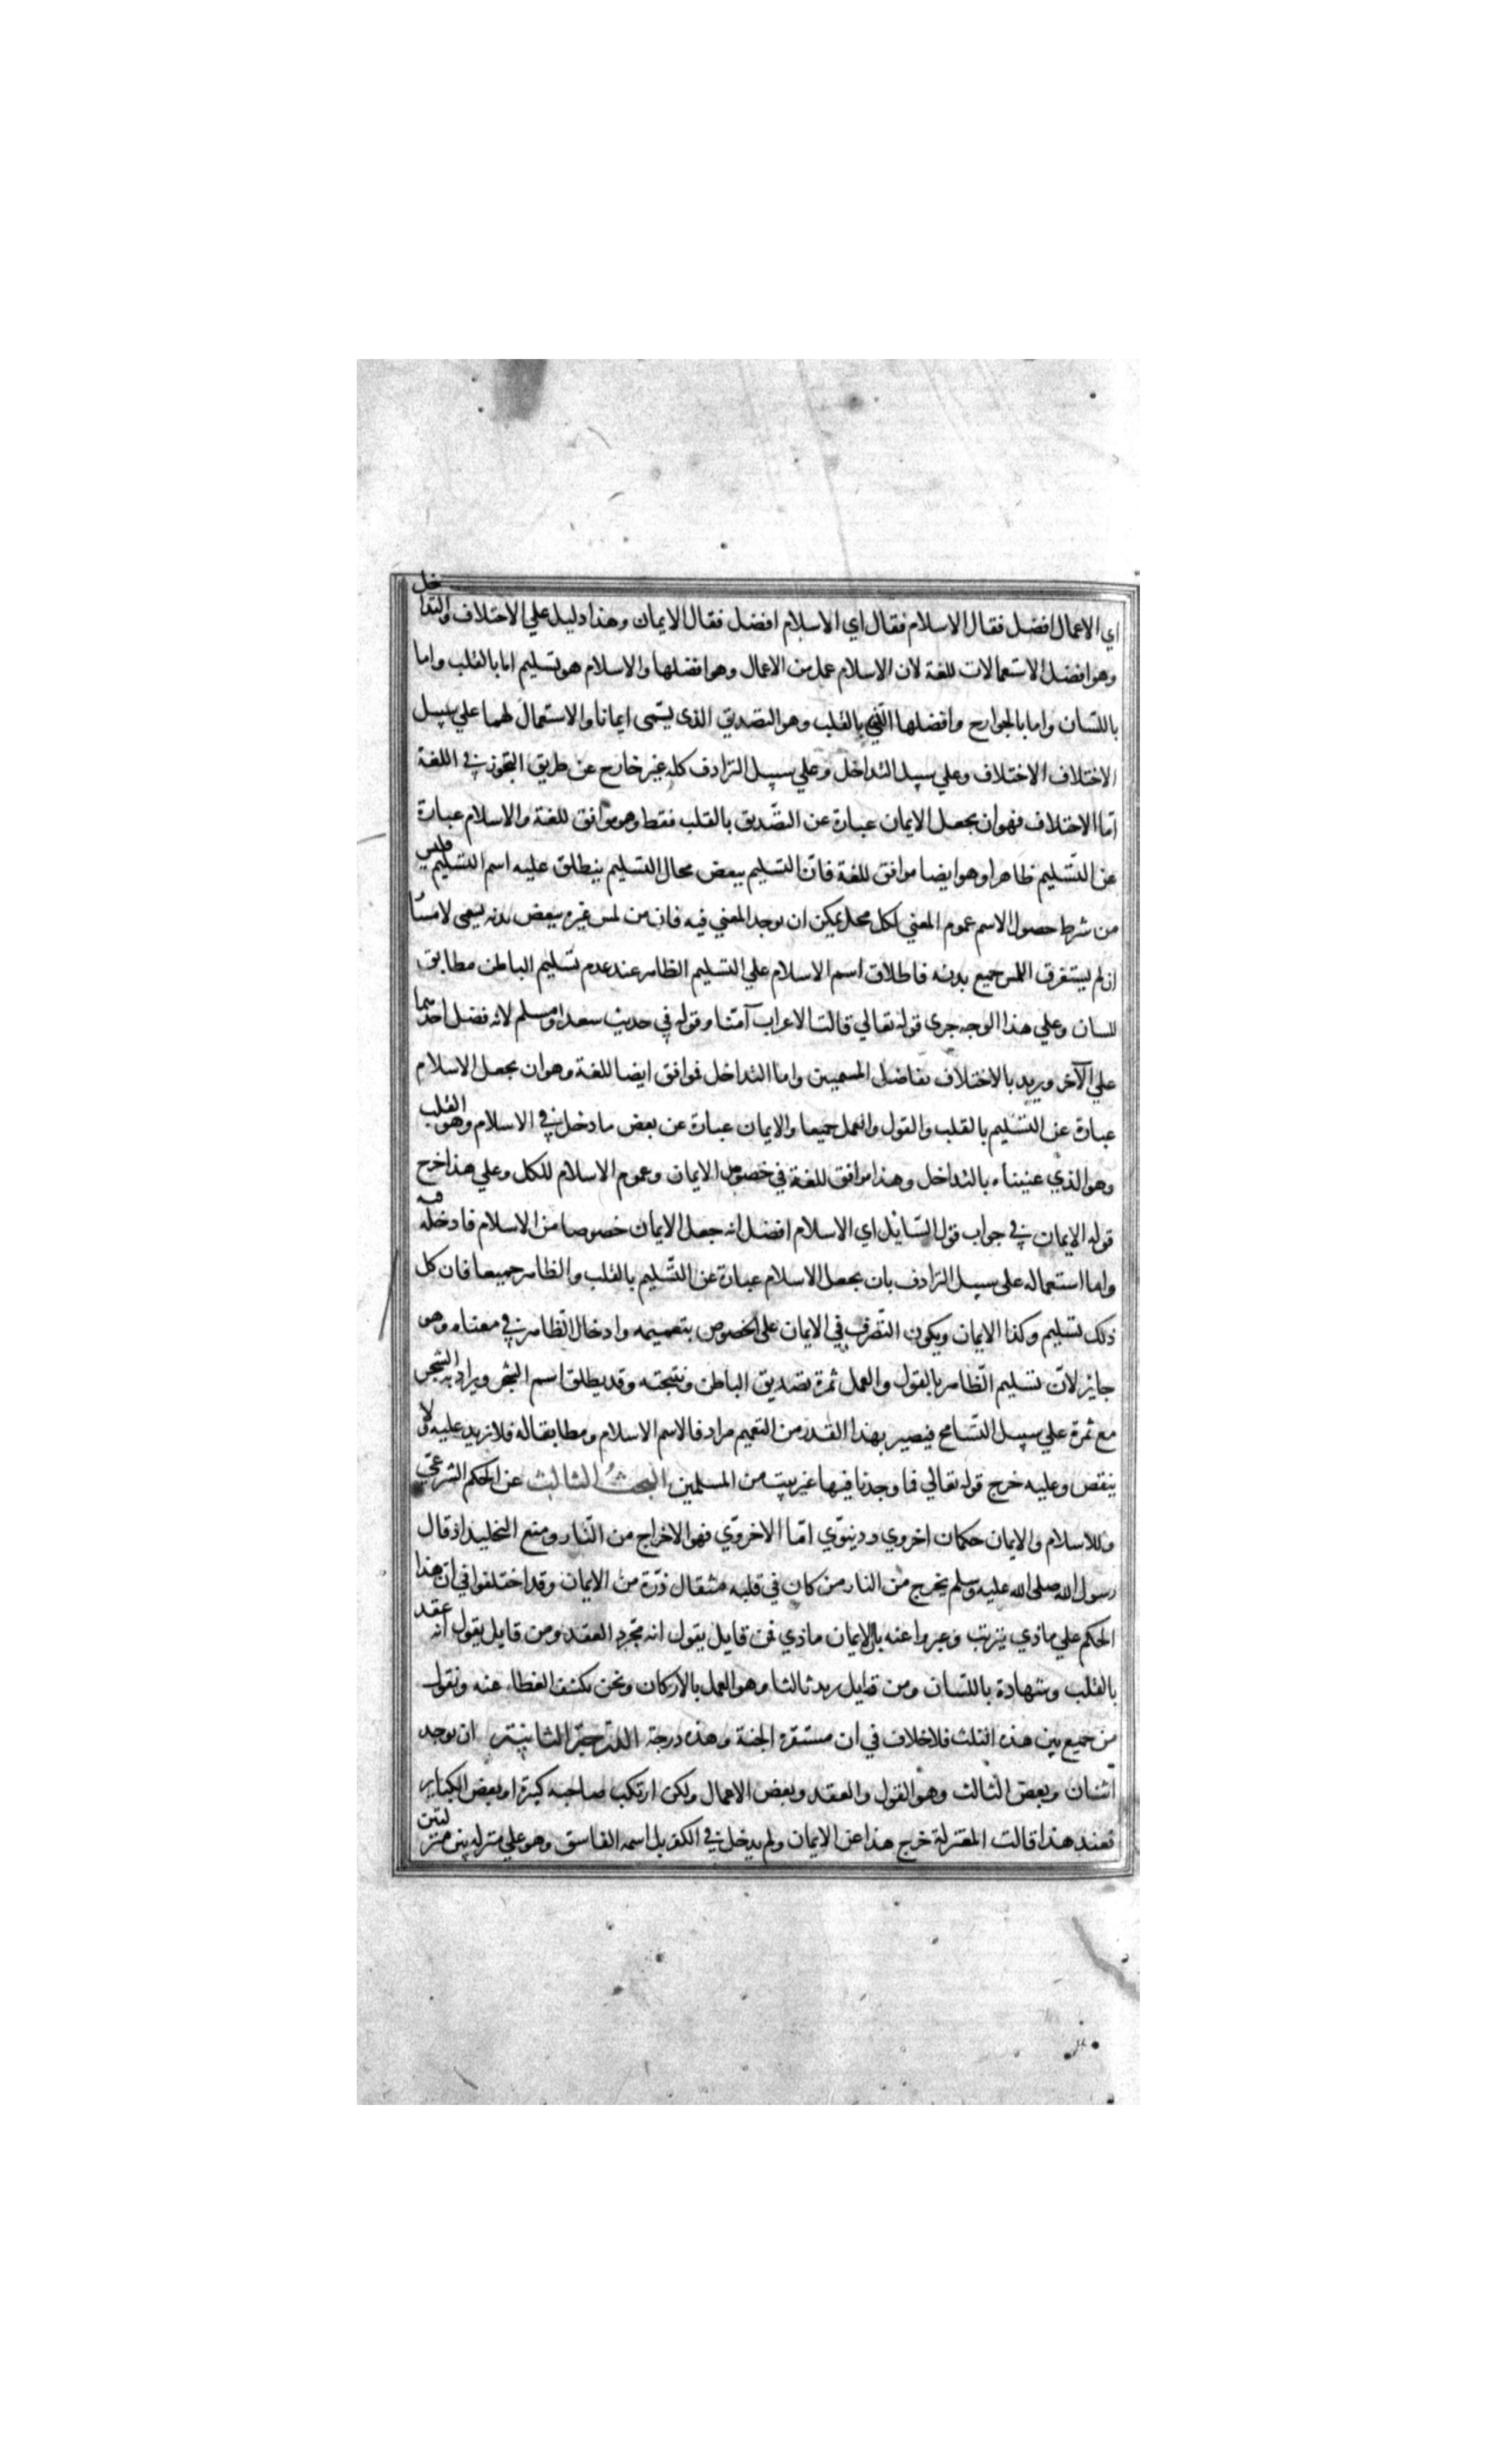 اي الاعمال افضل فقال الاسلام فقال اي الاسلام افضل فقال الايمان وهذا دليل علي الاختلاف والتداخل
وهو افضل الاستعمالات للغة لان الاسلام عمل من الاعمال وهو افضلها والاسلام هو تسليم اما بالقلب واما
باللسان واما بالجوارح وافضلها الذي بالقلب وهو التصديق الذي يسمى ايمانا والاستعمال لهما علي سبيل
الاختلاف الاختلاف وعلي سبيل التداخل وعلي سبيل الترادف كله غير خارج عن طريق التجوز في اللغة
اما الاختلاف فهو ان يجعل الايمان عبارة عن التصديق بالقلب فقط وهو موافق للغة والاسلام عبارة
عن التسليم ظاهرا وهو ايضا موافق للغة فان التسليم ببعض محال التسليم ينطلق عليه اسم التسليم فليس
من شرط حصول الاسم عموم المعني لكل محل يمكن ان يوجد المعني فيه فان من لمس غيره ببعض بدنه يسمى لامسا
ان لم يستغرق اللمس جميع بدنه فاطلاق اسم الاسلام علي التسليم الظاهر عند عدم تسليم الباطن مطابق
للسان وعلي هذا الوجه جرى قوله تعالي قالت الاعراب آمنا وقوله في حديث سعد او مسلم لانه فضل احدهما
علي الآخر ويريد بالاختلاف تفاضل المسميين واما التداخل فموافق ايضا للغة وهو ان يجعل الاسلام
عبارة عن التسليم بالقلب والقول والعمل جميعا والايمان عبارة عن بعض ما دخل في الاسلام وهو القلب
وهو الذي عنيناه بالتداخل وهذا موافق للغة في خصوص الايمان وعموم الاسلام للكل وعلي هذا خرج
قوله الايمان في جواب قول السايل اي الاسلام افضل انه جعل الايمان خصوصا من الاسلام فادخله فيه
واما استعماله على سبيل الترادف بان يجعل الاسلام عبارة عن التسليم بالقلب والظاهر جميعا فان كل
ذلك تسليم وكذا الايمان ويكون التصرف في الايمان على الخصوص بتعميمه وادخال الظاهر في معناه وهو
جايز لان تسليم الظاهر بالقول والعمل ثمرة تصديق الباطن ونتيجته وقد يطلق اسم الشجر ويراد به الشجر
مع ثمرة علي سبيل التسامح فيصير بهذا القدر من التعميم مرادفا لاسم الاسلام ومطابقا له فلا تزيد عليه ولا
ينقص وعليه خرج قوله تعالي فما وجدنا فيها غير بيت من المسلمين البحث الثالث عن الحكم الشرعي
وللاسلام والايمان حكمان اخروي ودينوي اما الاخروي فهو الاخراج من النار ومنع التخليد اذ قال
رسول الله صلى الله عليه وسلم يخرج من النار من كان في قلبه مثقال ذرة من الايمان وقد اختلفوا في ان هذا
الحكم علي ماذي يترتب وعبروا عنه بان الايمان ماذي فمن قايل يقول انه مجرد العقد ومن قايل يقول انه عقد
بالقلب وشهادة باللسان ومن قايل يزيد ثالثا وهو العمل بالاركان ونحن نكشف الغطاء عنه ونقول
من جميع بين هذه الثلث فلا خلاف في ان مستقره الجنة وهذه درجة الدرجة الثانية ان يوجد
اثنان وبعض الثالث وهو القول والعقد وبعض الاعمال ولكن ارتكب صاحبه كبيرة او بعض الكباير
فعند هذا قالت المعتزلة خرج هذا عن الايمان ولم يدخل في الكفر بل اسمه الفاسق وهو علي منزله بين منزلتين